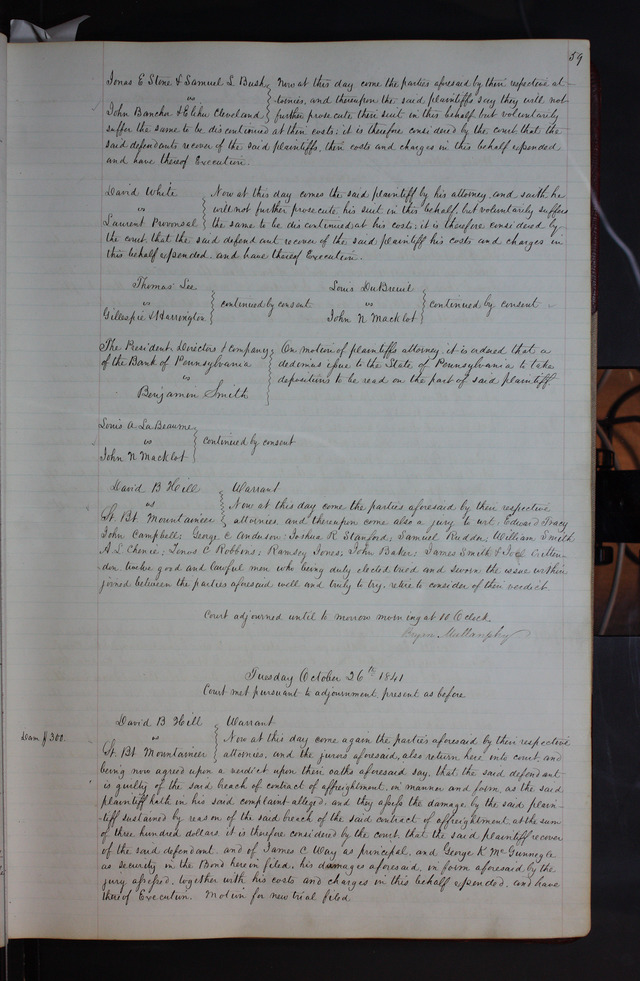 59
Jonas E Stone & Samuel L Bush
vs
John Bancha & Elihu Cleveland
Now at this day come the parties aforesaid by their respective at-
tornies, and thereupon the said plaintiffs say they will not
further prosecute their suit in this behalf but voluntarily
suffer the same to be discontinued at their costs; it is therefore considered by the court that the
said defendants recover of the said plaintiffs, their costs and charges in this behalf expended
and have thereof Execution.
David White
vs
Laurent Provonsal
Now at this day comes the said plaintiff by his attorney, and saith he
will not further prosecute his suit in this behalf, but voluntarily suffers
the same to be discontinued at his costs; it is therefore considered by
the court, that the said defendant recover of the said plaintiff his costs and charges in
this behalf expended, and have thereof Execution.
Thomas Lee
vs
Gillespie & Harrington
continued by consent
Louis DuBreuil
vs
John N Macklot
continued by consent
The President, Directors & company
of the Bank of Pennsylvania
vs
Benjamin Smith
On motion of plaintiffs attorney, it is ordered that a
dedimus issue to the State of Pennsylvania to take
depositions to be read on the part of said plaintiff.
Louis A LaBeaume
vs
John N Macklot
continued by consent
David B Hill
vs
St. Bt Mountaineer
Warrant
Now at this day come the parties aforesaid by their respective
attornies, and thereupon come also a jury to wit: Edward Tracy
John Campbell; George C Anderson; Joshua R Stanford; Samuel Rudder; William Smith
A.L. Chenie; Jonas C Robbons; Ramsey Jones; John Baker; James Smith &
don, twelve good and lawful men, who being duly elected tried and sworn the issue within
joined between the parties aforesaid well and truly to try, retire to consider of their verdict
Court adjourned until to morrow morning at 10 O'clock.
Bryan Mullanphy
Tuesday October 26th 1841
Court met pursuant to adjournment, present as before
Dam $300.
David B Hill
vs
St. Bt Mountaineer
Warrant
Now at this day come again the parties aforesaid by their respective
attornies, and the jurors aforesaid, also return here into court, and
being now agreed upon a verdict upon their oaths aforesaid say, that the said defendant
is guilty of the said breach of contract of affreightment, in manner and form, as the said
plaintiff hath in his said complaint alleged, and they assess the damage by the said plain-
tiff sustained by reason of the said breach of the said contract of affreightment, at the sum
of three hundred dollars, it is therefore considered by the court, that the said plaintiff recover
of the said defendant, and of James C Way as principal, and George K McGunnegle
as security in the Bond herein filed, his damages aforesaid, in form aforesaid by the
jury assessed, together with his costs and charges in this behalf expended, and have
thereof Execution. Motion for new trial filed.